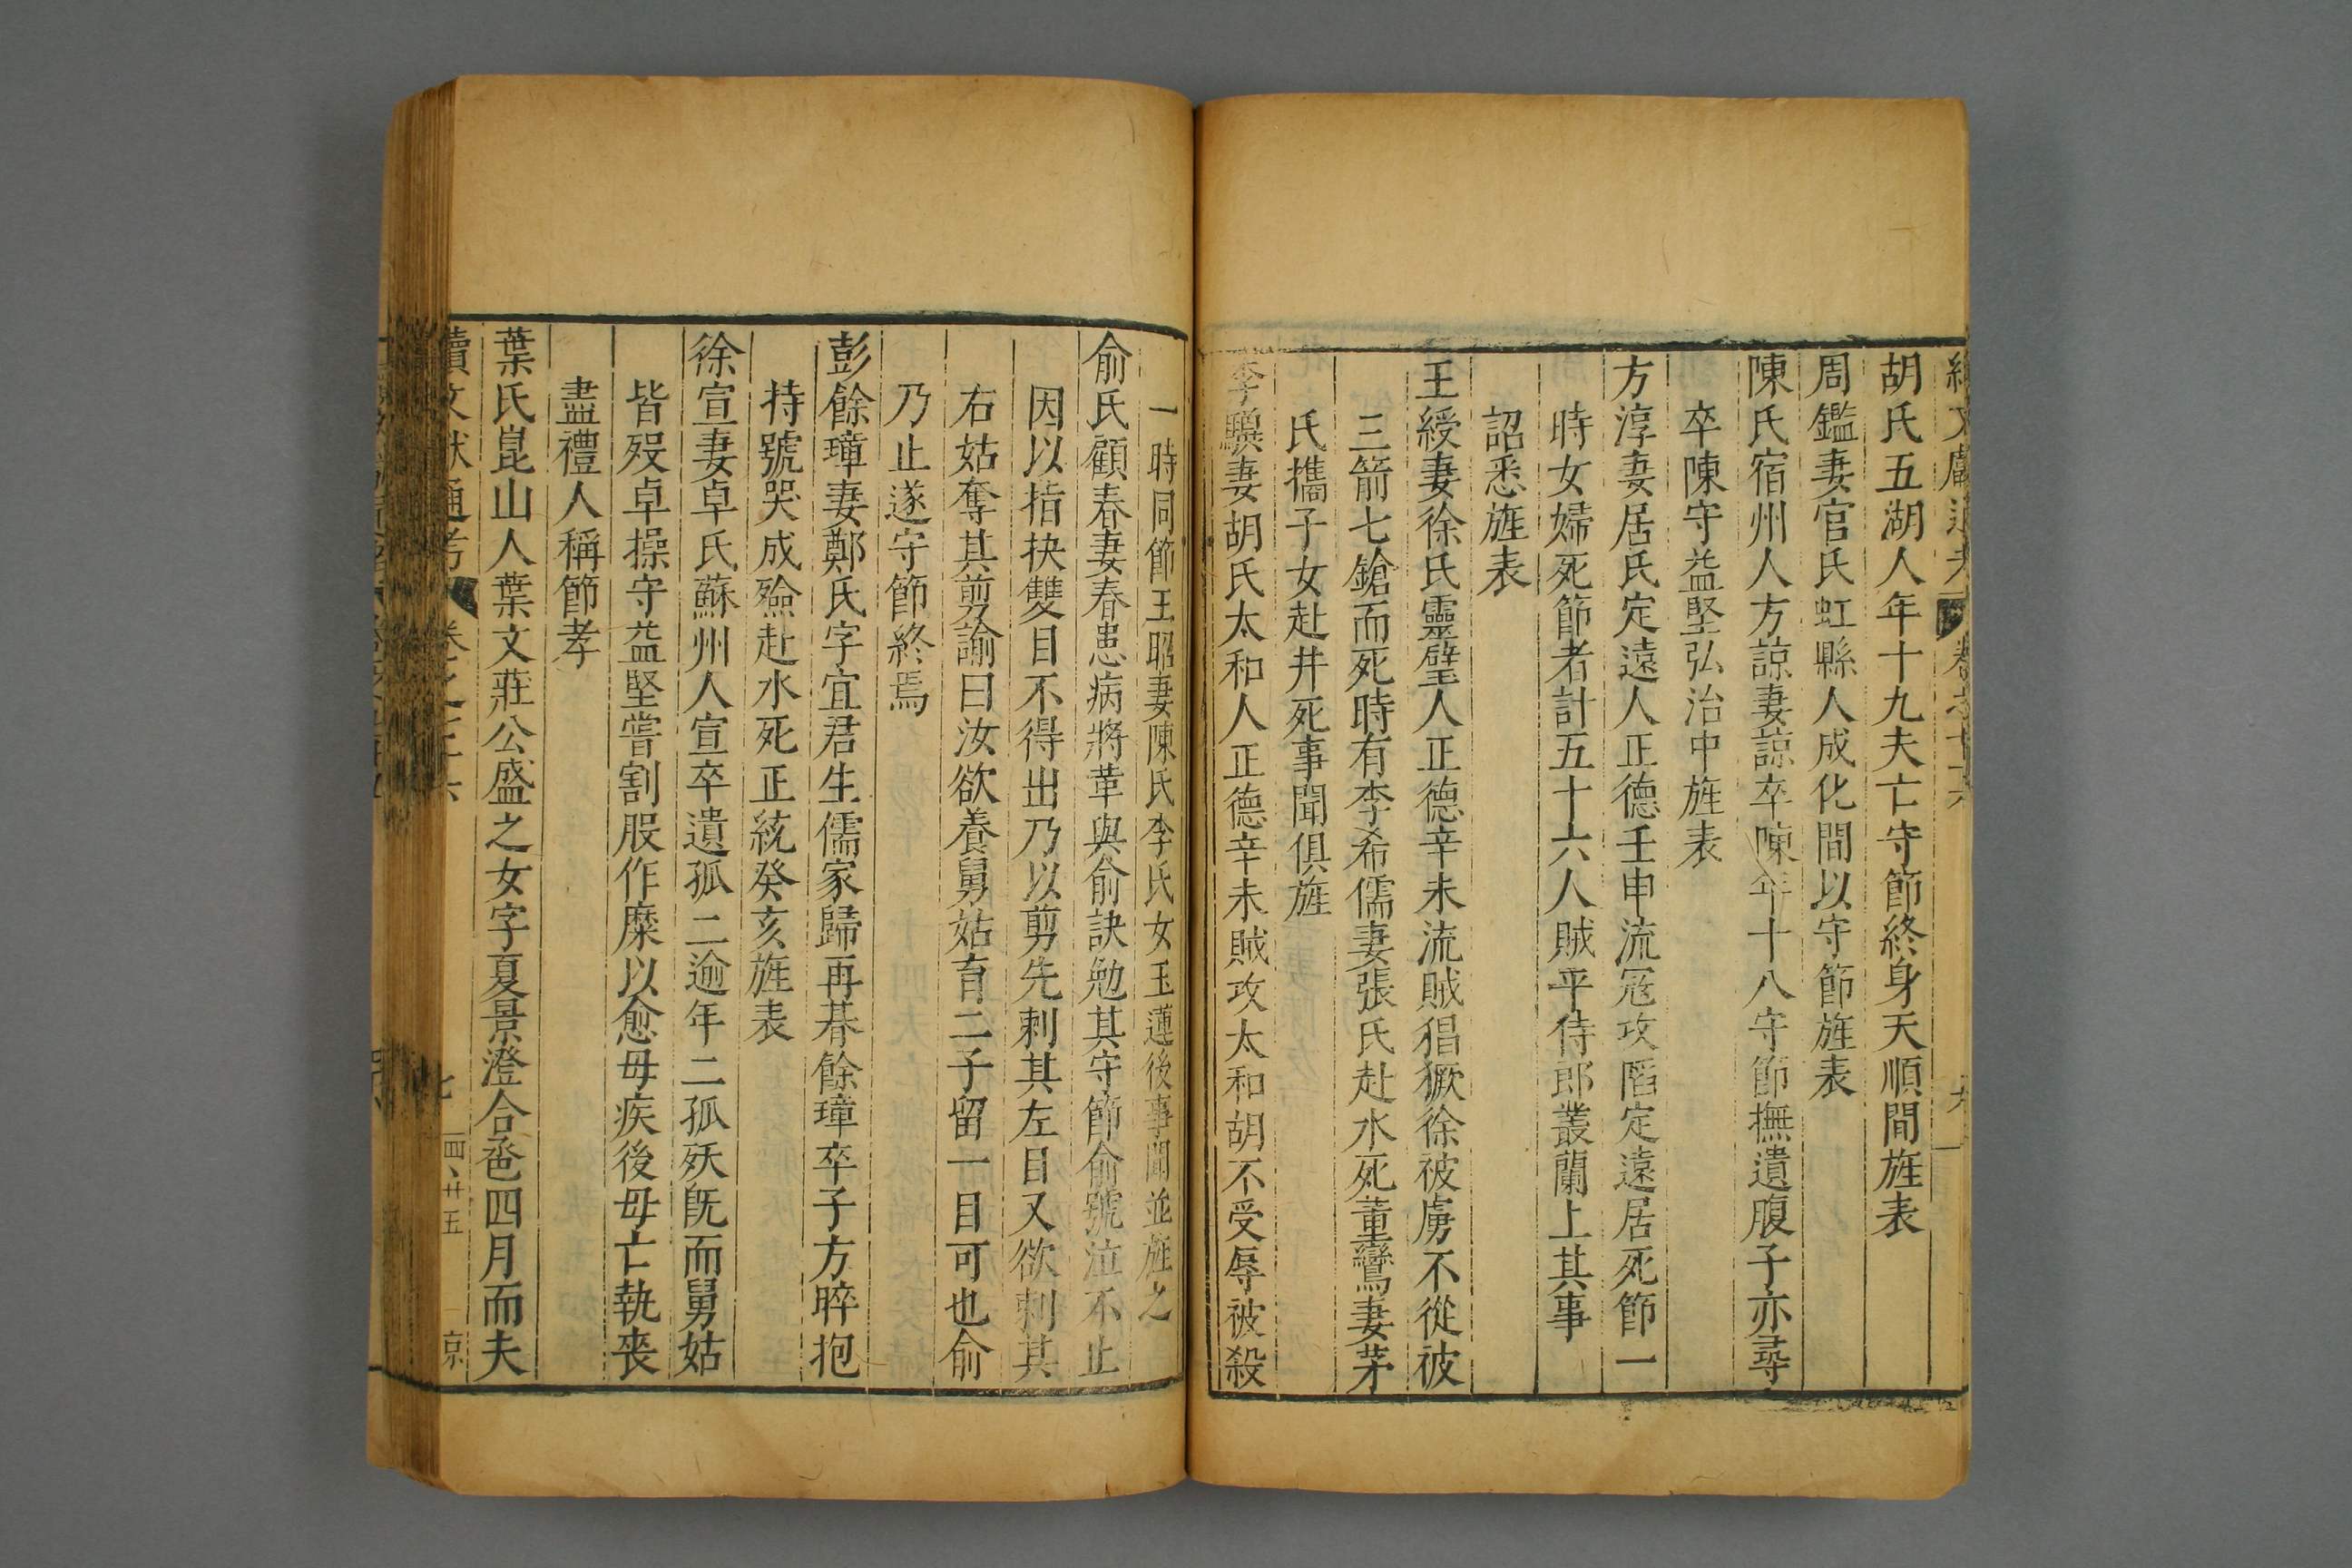 胡氏五湖人年十九夫亡守節終身天順間旌表
周鑑妻官氏虹縣人成化間以守節旌表
陳氏宿州人方諒妻諒卒陳年十八守節撫遺腹子亦尋
卒陳守益堅弘治中旌表
方淳妻居氏定遠人正德壬申流寇攻陷定遠居死節一
時女婦死節者計五十六人賊平侍郎叢蘭上其事
詔悉旌表
王綬妻徐氏靈璧人正德辛未流賊猖獗徐被虜不從被
三箭七鎗而死時有李希儒妻張氏赴水死董鸞妻茅
氏攜子女赴井死事聞俱旌
李驥妻胡氏太和人正德辛未賊攻太和胡不受辱被殺
一時同節王昭妻陳氏李氏女玉蓮後事聞並旌之
俞氏顧春妻春患病將革與俞訣勉其守節俞號泣不止
因以指抉雙目不得出乃以剪先刺其左目又欲刺其
右姑奪其剪諭曰汝欲養舅姑育二子留一目可也俞
乃止遂守節終焉
彭餘璋妻鄭氏字宜君生儒家歸再朞餘璋卒子方晬抱
持號哭成殮赴水死正統癸亥旌表
徐宣妻卓氏蘇州人宣卒遺孤二逾年二孤殀旣而舅姑
皆歿卓操守益堅嘗割股作糜以愈母疾後母亡執喪
盡禮人稱節孝
葉氏崑山人葉文莊公盛之女字夏景澄合巹四月而夫
續文獻通考 卷之七十六 七 四、廿五 京